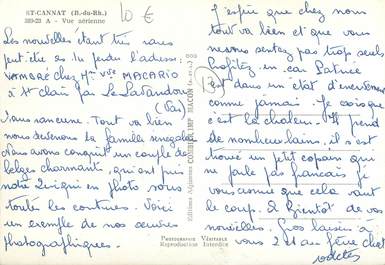 ST-CANNAT (B.-du-Rh.)
389-23 A - Vue aérienne
10 €
Les nouvelles étant très rares
peut être as tu perdu l'adresse:
chez Mme Vve MACARIO
à St Clair par Le Lavandou
(Var)
Sans rancune. Tout va bien
nous devenons la famille
Nous avons conquis un couple de
belges charmants, qui ont pris
notre en photo sous
toutes les coutures. Voici
un exemple de nos œuvres
photographiques.
Editions Aériennes COMBIER IMP. MACON
PHOTOGRAPHIE VÉRITABLE
Reproduction Interdite
J'espère que chez nous
tout va bien et que vous
ne vous sentez pas trop seuls
profitez en car Patrice
est dans un état d'énervement
comme jamais. Je crois que
c'est la chaleur. Il perd
il s'est
trouvé un petit copain qui
ne parle pas français si
vous voyez que cela vaut
le coup. A bientôt de vos
nouvelles. Gros baisers à
vous 2 et au frère chéri
Odette